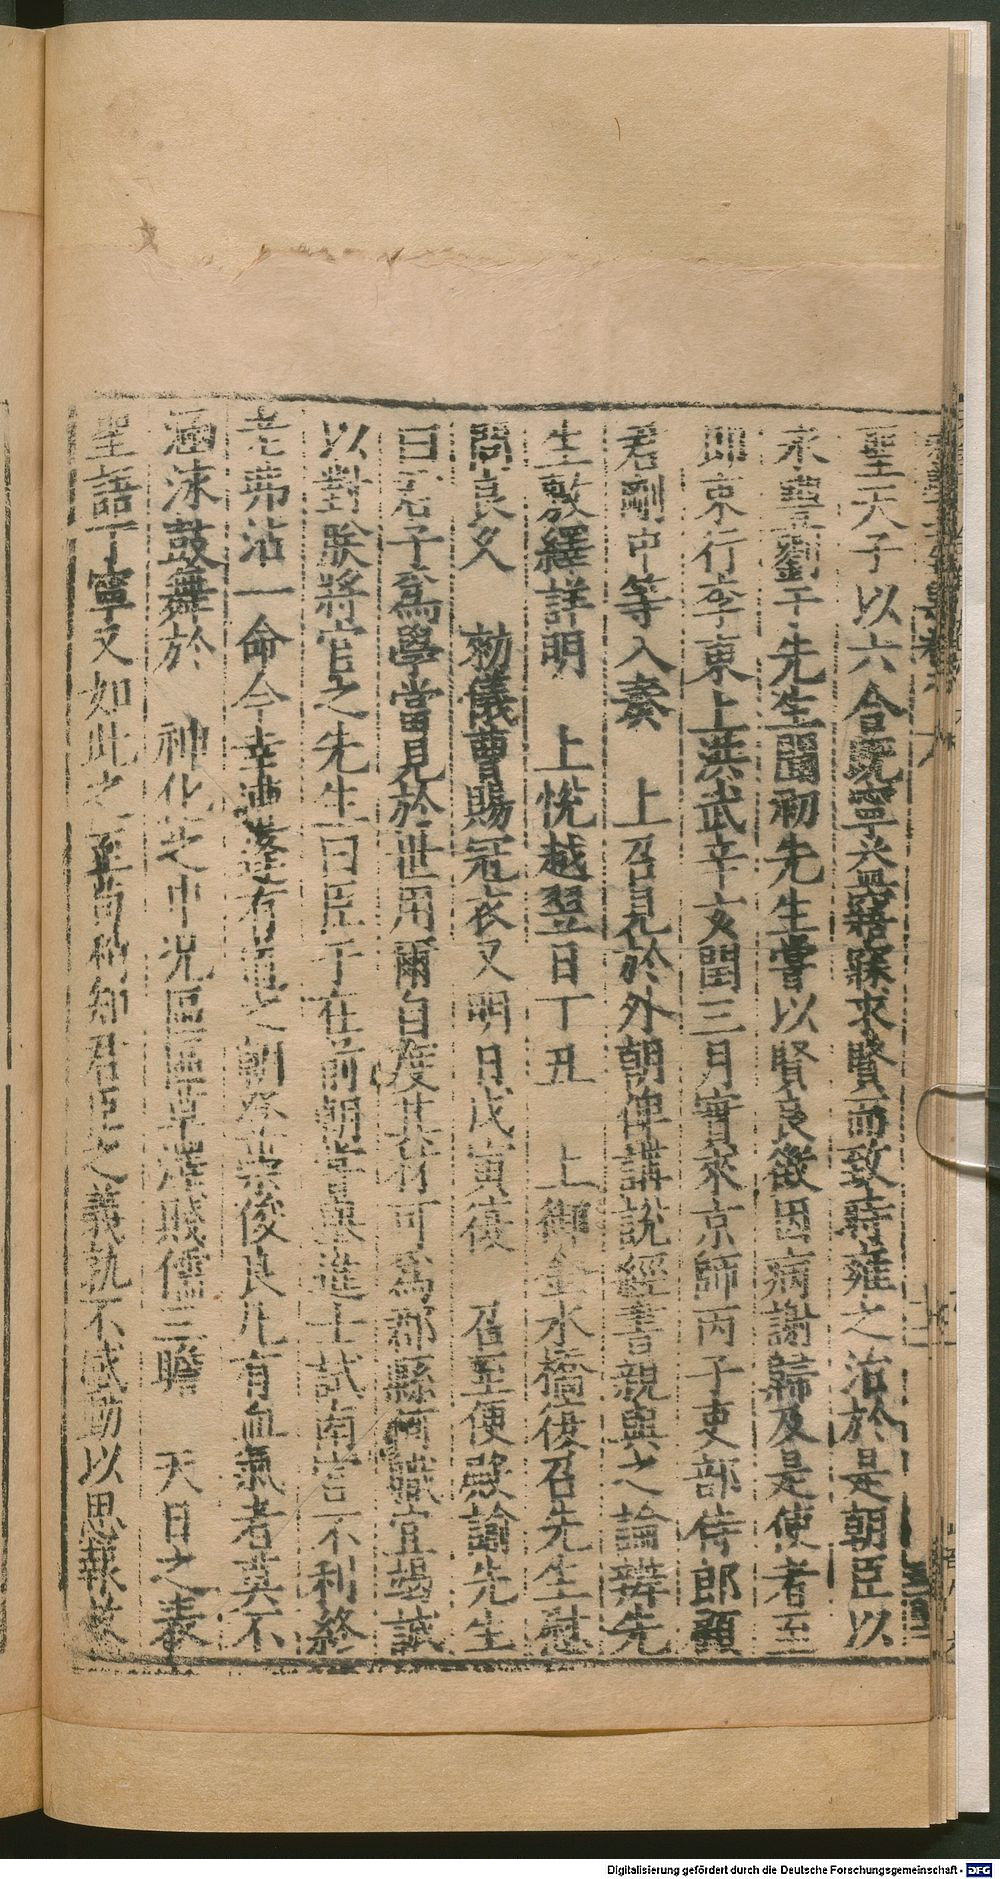 聖天子以六合既寧益寤寐求賢而致時雍之治於是朝臣以
永豐劉于先生聞初先生嘗以賢良徵因病謝歸及是使者至
即束行李東上洪武辛亥閏三月實來京師丙子吏部侍郎顧
君剛中等入奏 上召見於外朝俾講說經書親與之論辨先
生敷繹詳明 上悅越翌日丁丑 上御金水橋復召先生慰
問良久 勑儀曹賜冠衣又明日戊寅復 召至便殿諭先生
曰君子為學當見於世用爾自度其材可為郡縣何職宜竭誠
以對朕將官之先生曰臣于在前朝嘗舉進士試南宮不利終
老弗沾一命今幸遭逢有道之朝登崇俊良凡有血氣者莫不
涵泳鼓舞於 神化之中况區區草澤賤儒三瞻 天日之表
聖語丁寧又如此之至苟稍知君臣之義孰不感動以思報
Digitalisierung gefördert durch die Deutsche Forschungsgemeinschaft - DFG